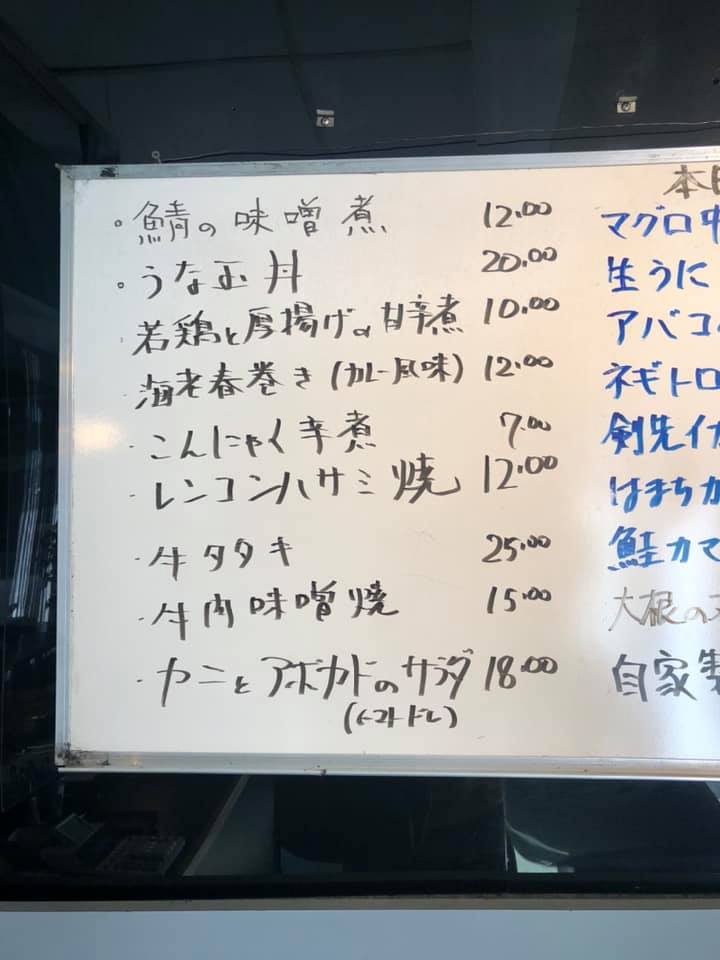 。鯖の味噌煮 12.00
。うな玉丼 20.00
若鶏と厚揚げの甘辛煮 10.00
海老春巻き(カレー風味) 12.00
・こんにゃく辛煮 7.00
・レンコンハサミ焼 12.00
・牛タタキ 25.00
・牛肉味噌焼 15.00
・カニとアボカドのサラダ 18.00
(トマトドレ)
本日
マグロ中
生うに
アバコの
ネギトロ
剣先イカ
はまちカ
鮭カマ
大根の
自家製